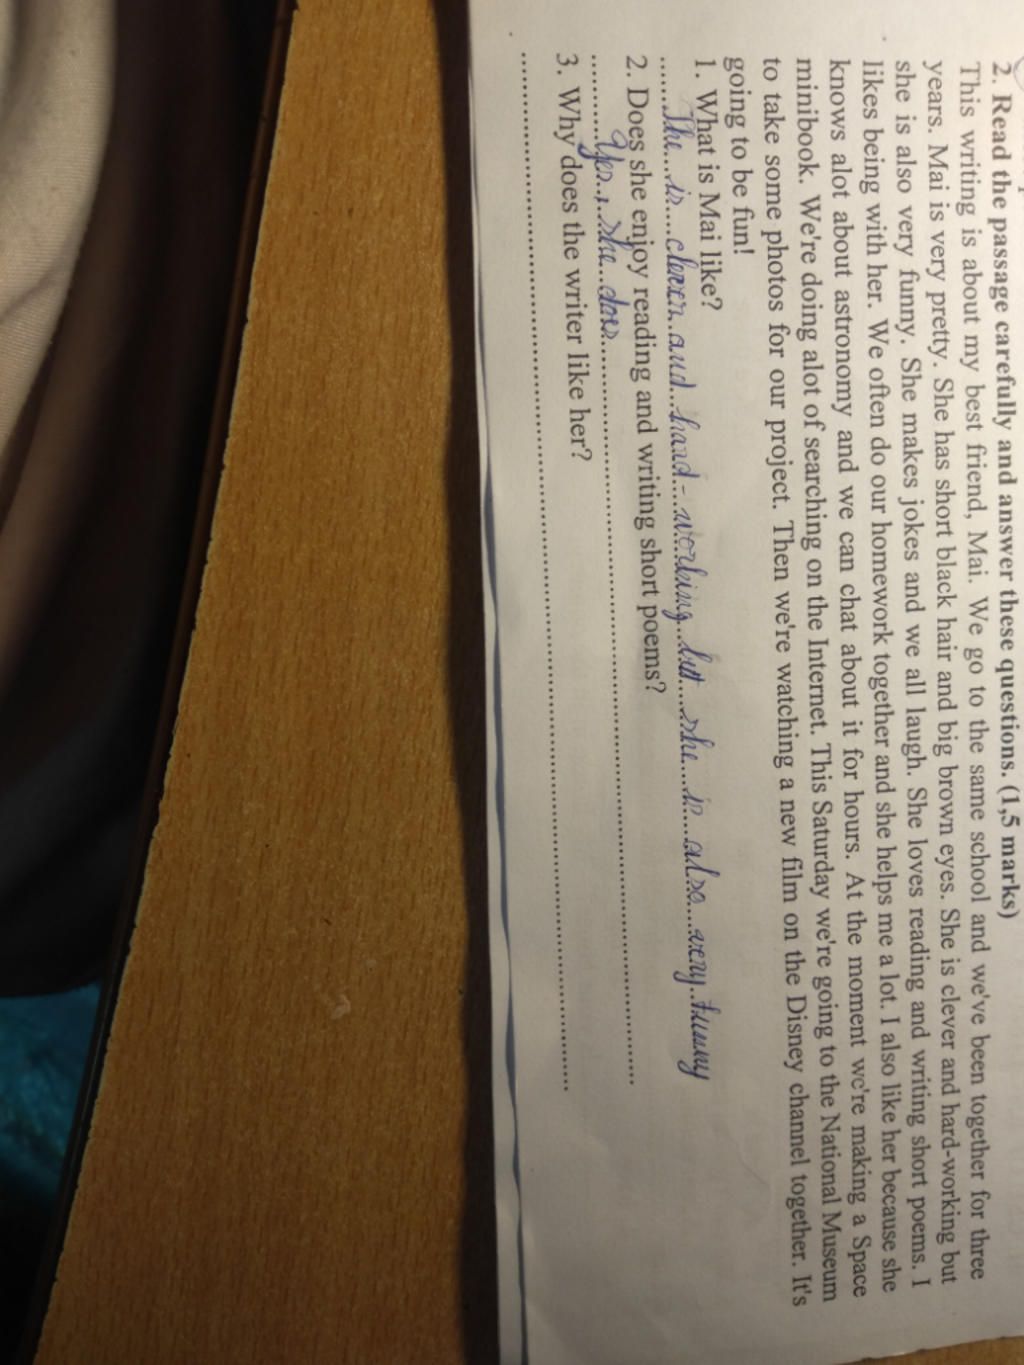 2. Read the passage carefully and answer these questions. (1,5 marks)
This writing is about my best friend, Mai. We go to the same school and we've been together for three
years. Mai is very pretty. She has short black hair and big brown eyes. She is clever and hard-working but
she is also very funny. She makes jokes and we all laugh. She loves reading and writing short poems. I
likes being with her. We often do our homework together and she helps me a lot. I also like her because she
knows alot about astronomy and we can chat about it for hours. At the moment we're making a Space
minibook. We're doing alot of searching on the Internet. This Saturday we're going to the National Museum
to take some photos for our project. Then we're watching a new film on the Disney channel together. It's
going to be fun!
1. What is Mai like?
She is clever and hard-working but she is also very funny
2. Does she enjoy reading and writing short poems?
Yes, she does
3. Why does the writer like her?